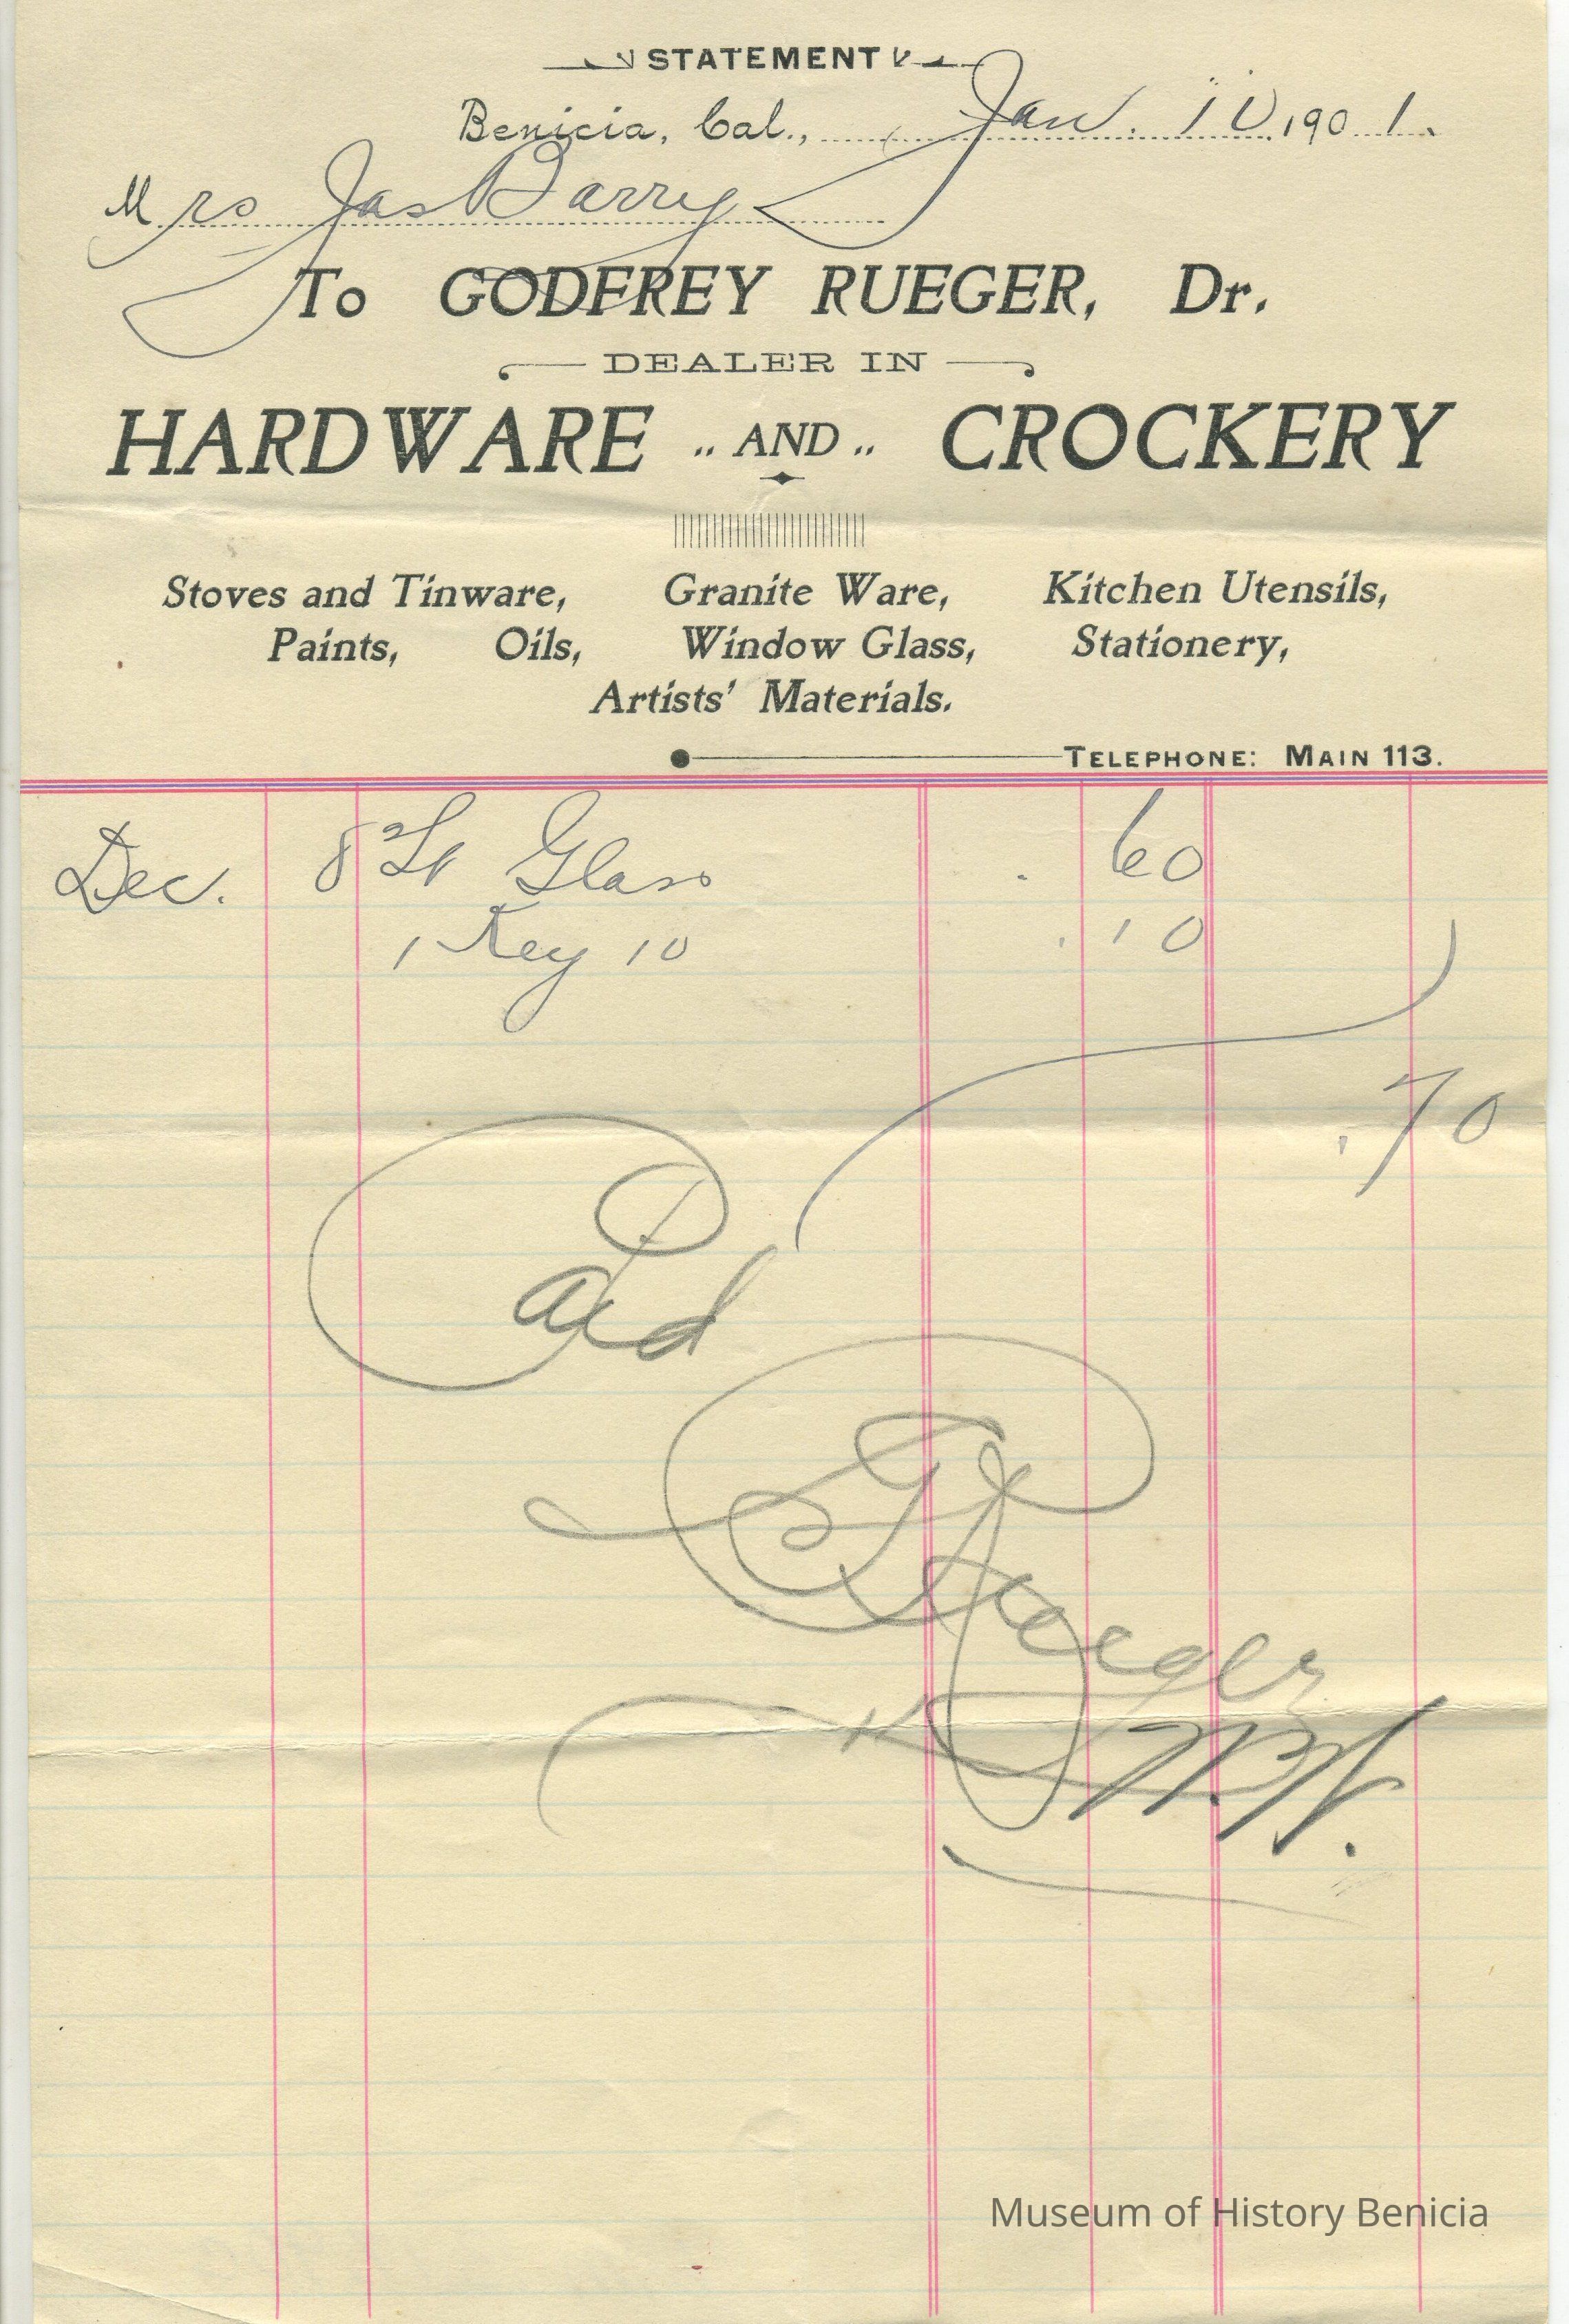 STATEMENT
Benicia, Cal., Jan. 10, 1901.
Mrs Jas Barry
To GODFREY RUEGER, Dr.
DEALER IN
HARDWARE .. AND .. CROCKERY
Stoves and Tinware, Granite Ware, Kitchen Utensils,
Paints, Oils, Window Glass, Stationery,
Artists' Materials.
TELEPHONE: MAIN 113.
Dec. 8 Lt Glass . 60
1 Key 10 . 10
.70
Paid
G Rueger
Museum of History Benicia